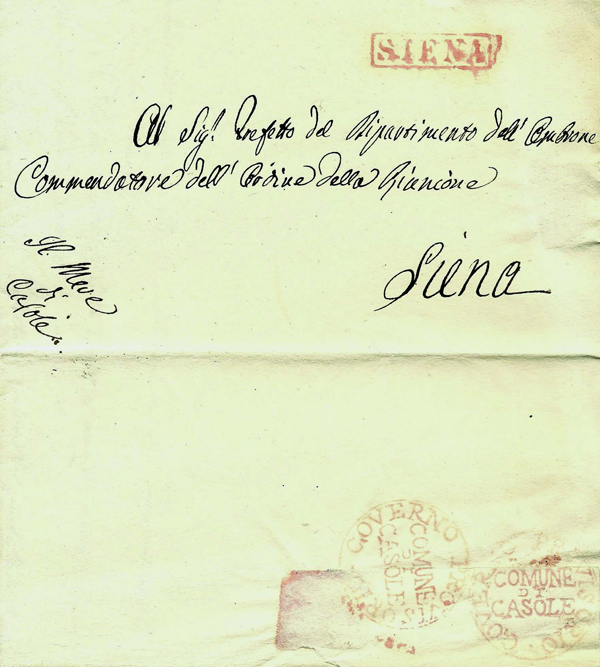 SIENA
Al Sig.r Prefetto del Dipartimento dell'Ombrone
Commendatore dell'Ordine della Riunione
Siena
Il Mere
di
Casole
GOVERNO
COMUNE
DI
CASOLE
COMUNE
DI
CASOLE
GOVERNO